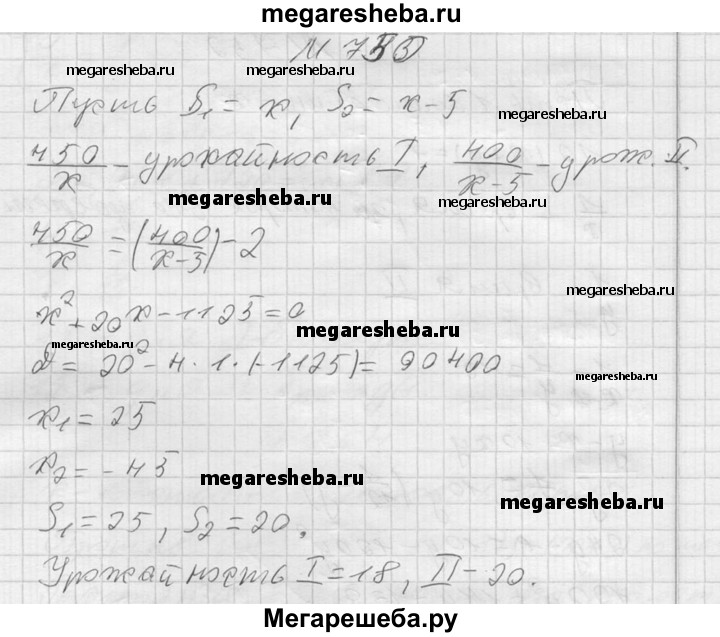 megaresheba.ru
N 755
megaresheba.ru megaresheba.ru
Пусть S₁ = x, S₂ = x-5
megaresheba.ru
450/x - урожайность I, 400/(x-5) - урож. II.
megaresheba.ru megaresheba.ru
450/x = (400/(x-5)) - 2
megaresheba.ru
x² + 20x - 1125 = 0
megaresheba.ru
megaresheba.ru
D = 20² - 4 · 1 · (-1125) = 90400
megaresheba.ru
x₁ = 25
x₂ = -45
megaresheba.ru
megaresheba.ru
S₁ = 25, S₂ = 20.
Урожайность I = 18, II - 20.
Мегарешеба.ру